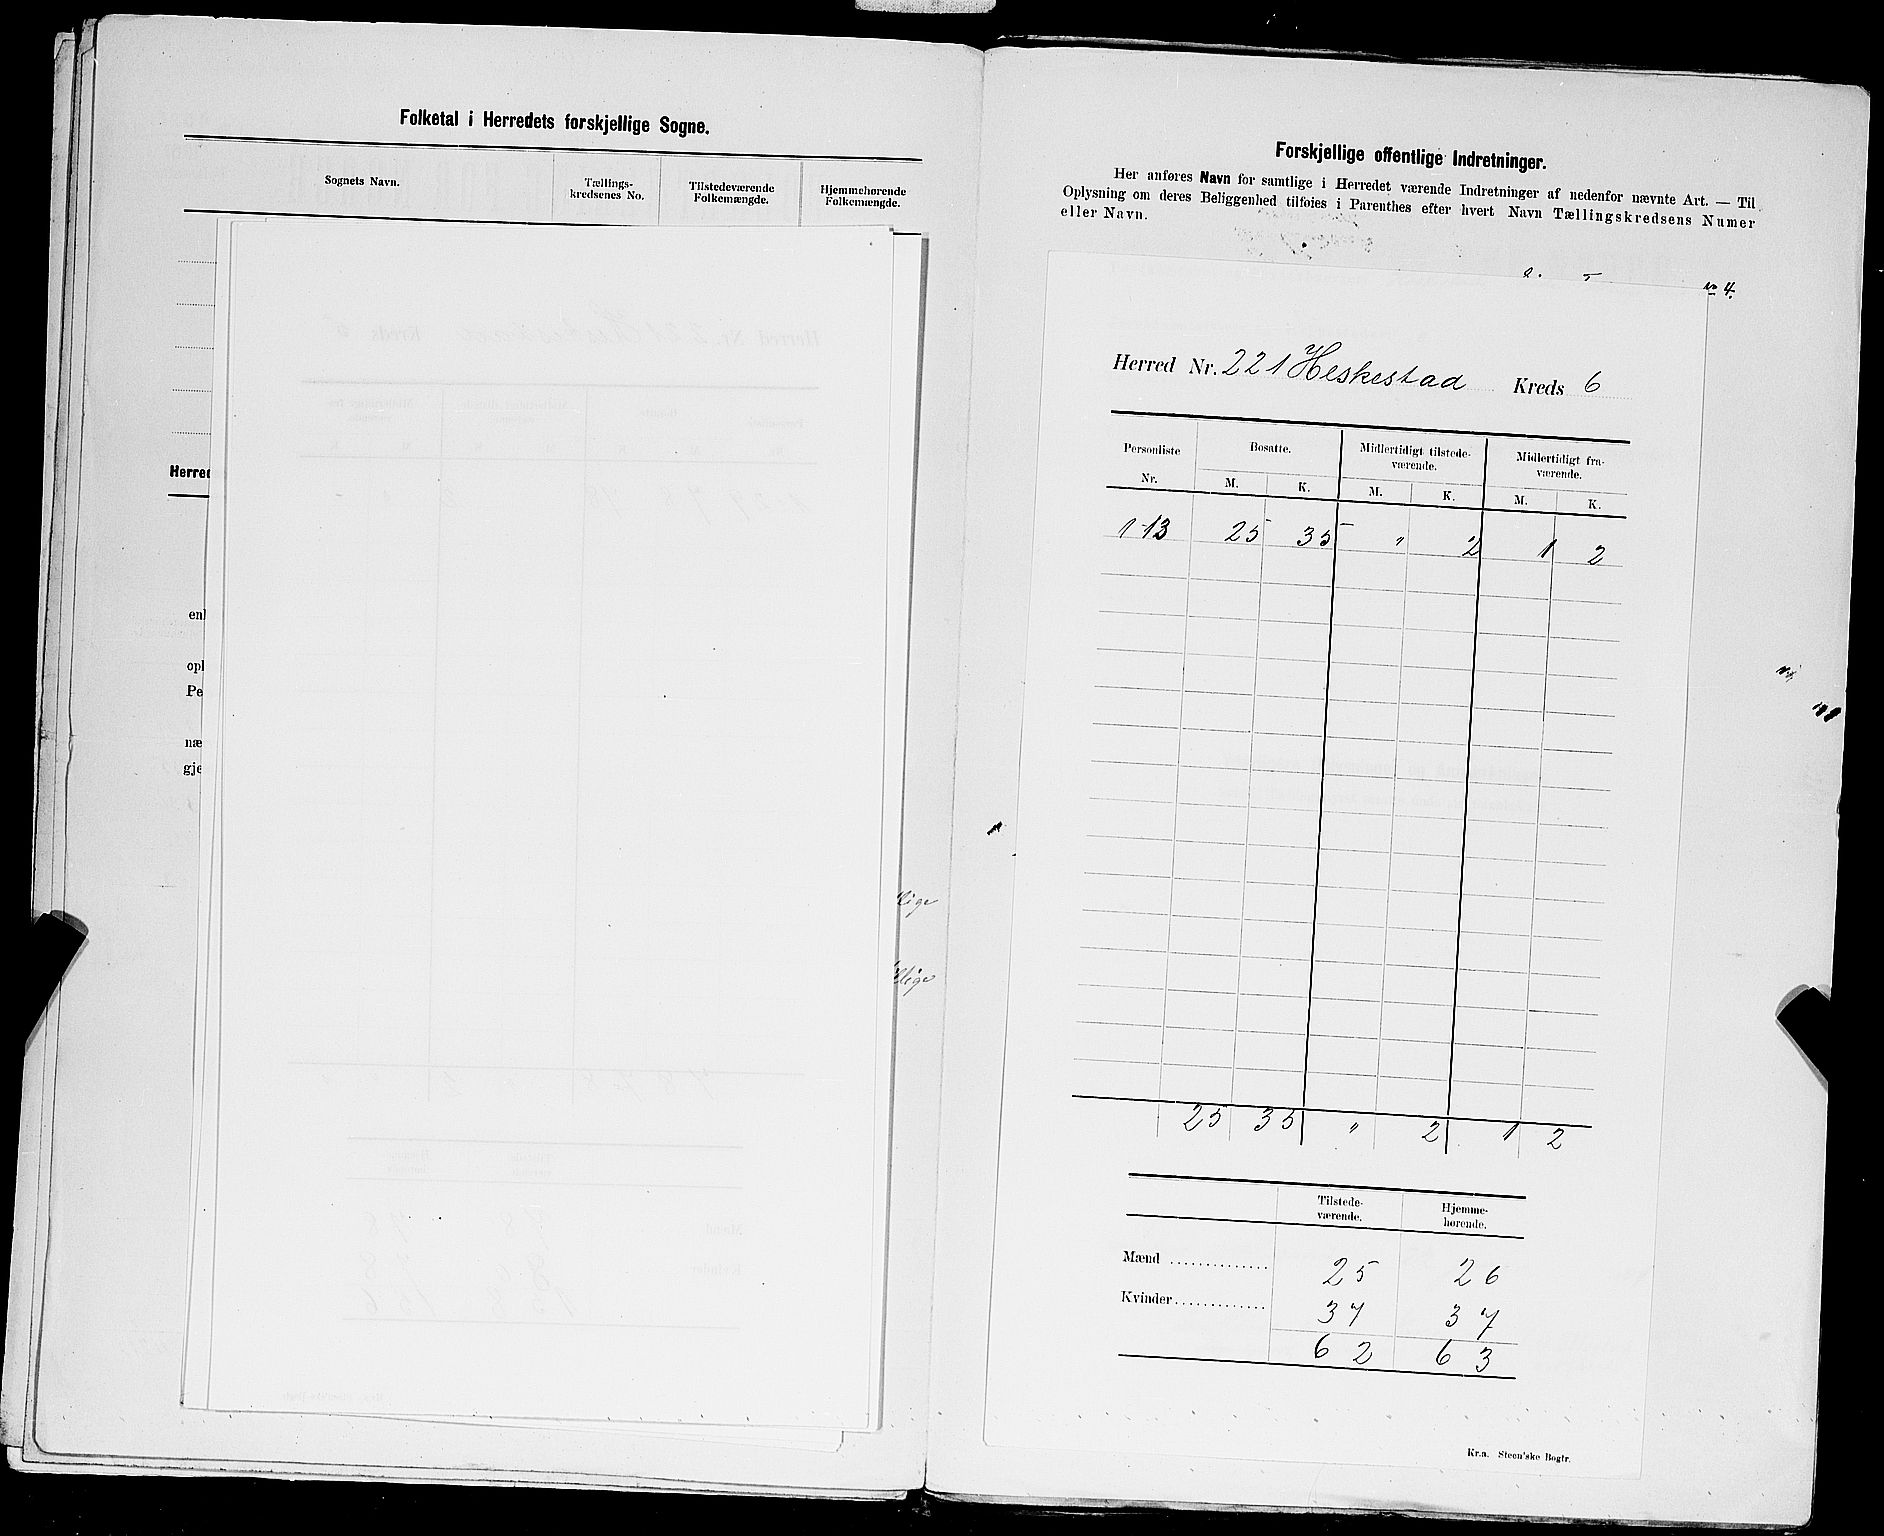 Folketal i Herredets forskjellige Sogne.
Sognets Navn.
Tællings-
kredsenes No.
Tilstedeværende
Folkemængde.
Hjemmehørende
Folkemængde.
Herred
enl
opl
Pe
næ
gje
llige
llige
Forskjellige offentlige Indretninger.
Her anføres Navn for samtlige i Herredet værende Indretninger af nedenfor nævnte Art. — Til
Oplysning om deres Beliggenhed tilføies i Parenthes efter hvert Navn Tællingskredsens Numer
eller Navn.
No 4.
Herred Nr. 221 Heskestad Kreds 6
Personliste
Nr.
Bosatte.
M. K.
Midlertidigt tilstede-
værende.
M. K.
Midlertidigt fra-
værende.
M. K.
1-13 25 35 „ 2 1 2
25 35 „ 2 1 2
Tilstede-
værende.
Hjemme-
hørende.
Mænd .............. 25 26
Kvinder............. 37 37
62 63
Kr.a. Steen'ske Bogtr.